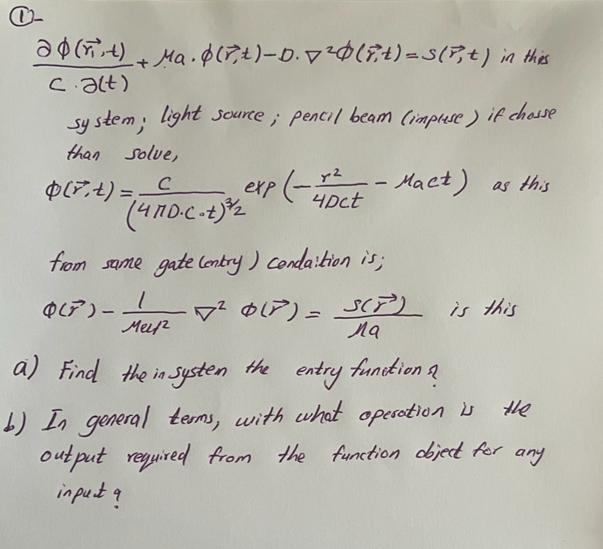 ①-
∂Φ(r⃗,t)/c.∂(t) + Ma.Φ(r⃗,t)-D.∇²Φ(r⃗,t)=S(r⃗,t) in this
system; light source; pencil beam (impluse) if chosse
than solve,
Φ(r⃗,t)= c/(4ΠD.c.t)^3/2 exp(-r²/4Dct - Mact) as this
from same gate (entry) condaition is;
Φ(r⃗)- 1/Meff² ∇² Φ(r⃗) = S(r⃗)/Ma is this
a) Find the in system the entry function?
b) In general terms, with what operation is the
output required from the function object for any
input?